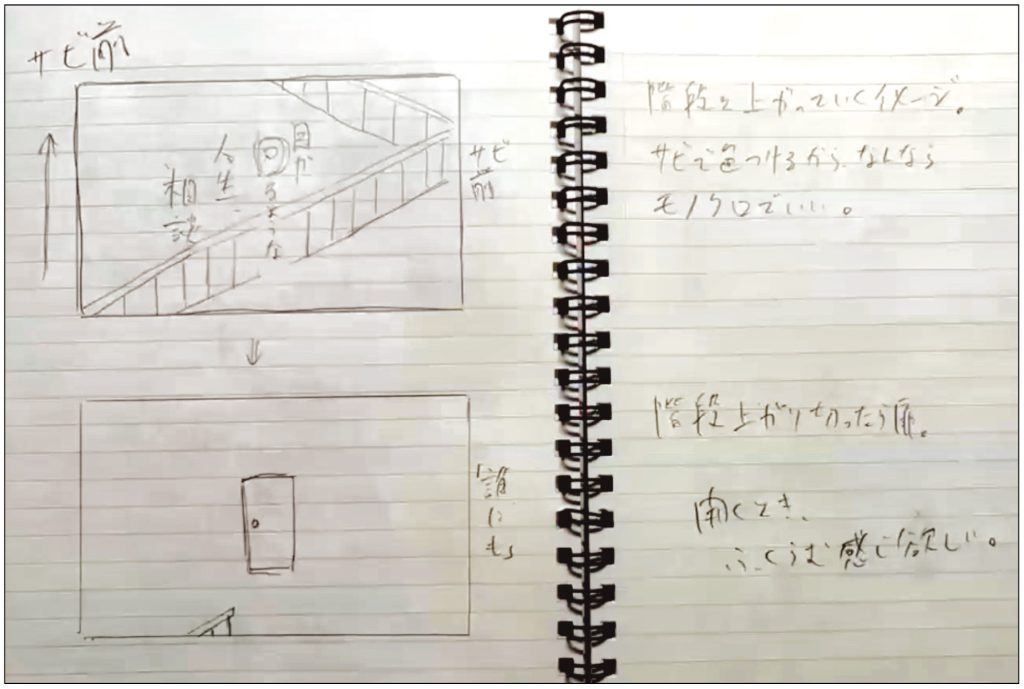 サビ前
目が
回るような
人生
相談
サビ前
階段を上がっていくイメージ。
サビで色つけるから、なんなら
モノクロでいい。
誰にも
階段上がり切ったら扉。
開くとき、
感じ欲しい。